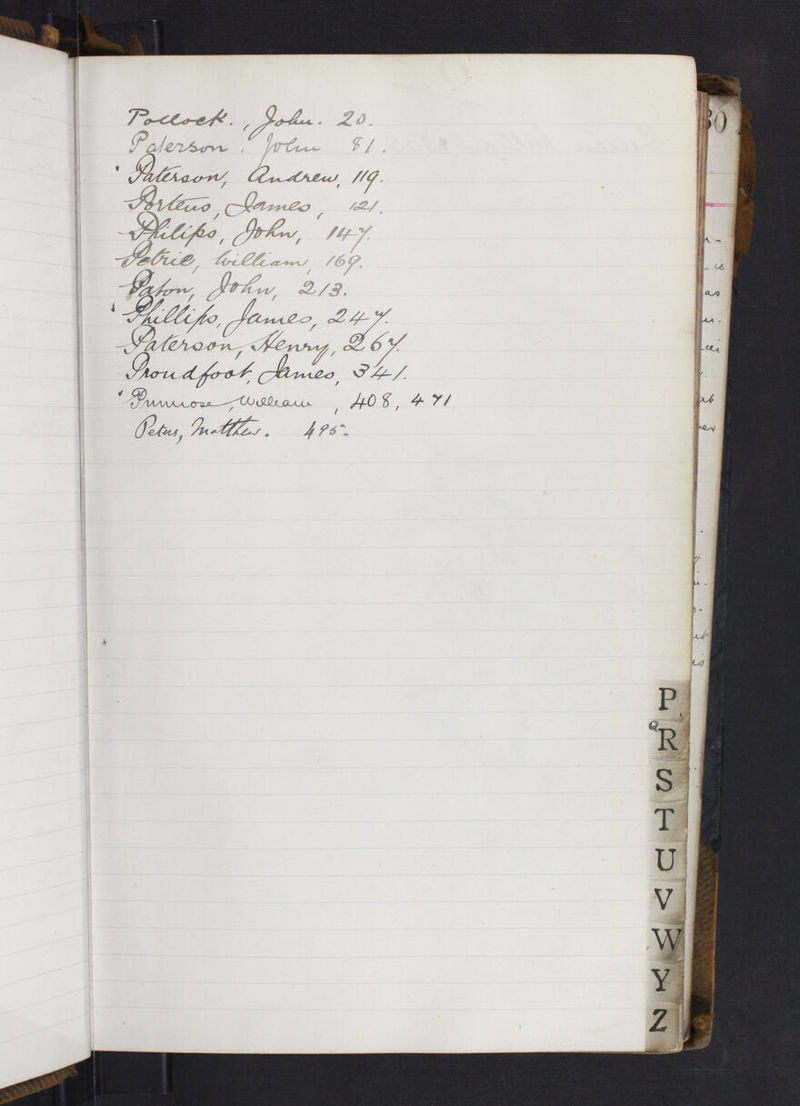 Pollock., John. 20.
Paterson. John 81.
Paterson, Andrew, 119.
Porteus, James, 121.
Philips, John, 147.
Petrie, William, 169.
Paton, John, 213.
Phillips, James, 247.
Paterson, Henry, 267.
Proudfoot, James, 341.
Primrose, William, 408, 471
Peters, Matthew. 495.
30
P
Q
R
S
T
U
V
W
Y
Z